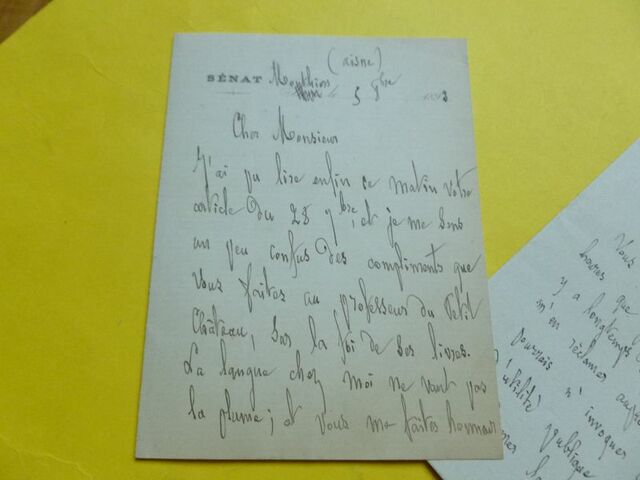 (aisne)
SÉNAT Monthiers
le 5 8bre 1883
Cher Monsieur
J'ai pu lire enfin ce matin votre
article du 28 7bre, et je me sens
un peu confus des compliments que
vous faites au professeur du Petit
Château, sur la foi de ses livres.
La langue chez moi ne vaut pas
la plume ; et vous me faites honneur
Vous
heures que
y a longtemps
m'en réclamer
pourrais n'invoquer
l'utilité publique